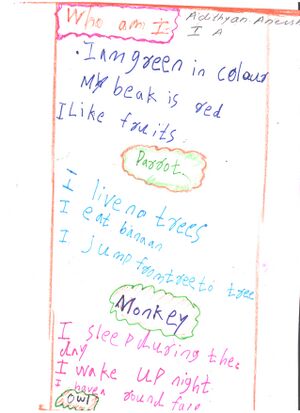 Who am I
Adithyan Anees
I A
. I am green in colour
My beak is red
I Like fruits
Parrot
I live no trees
I eat banaan
I jump from tree to tree
Monkey
I sleep during the
day
I wake up night
I have a round face
Owl